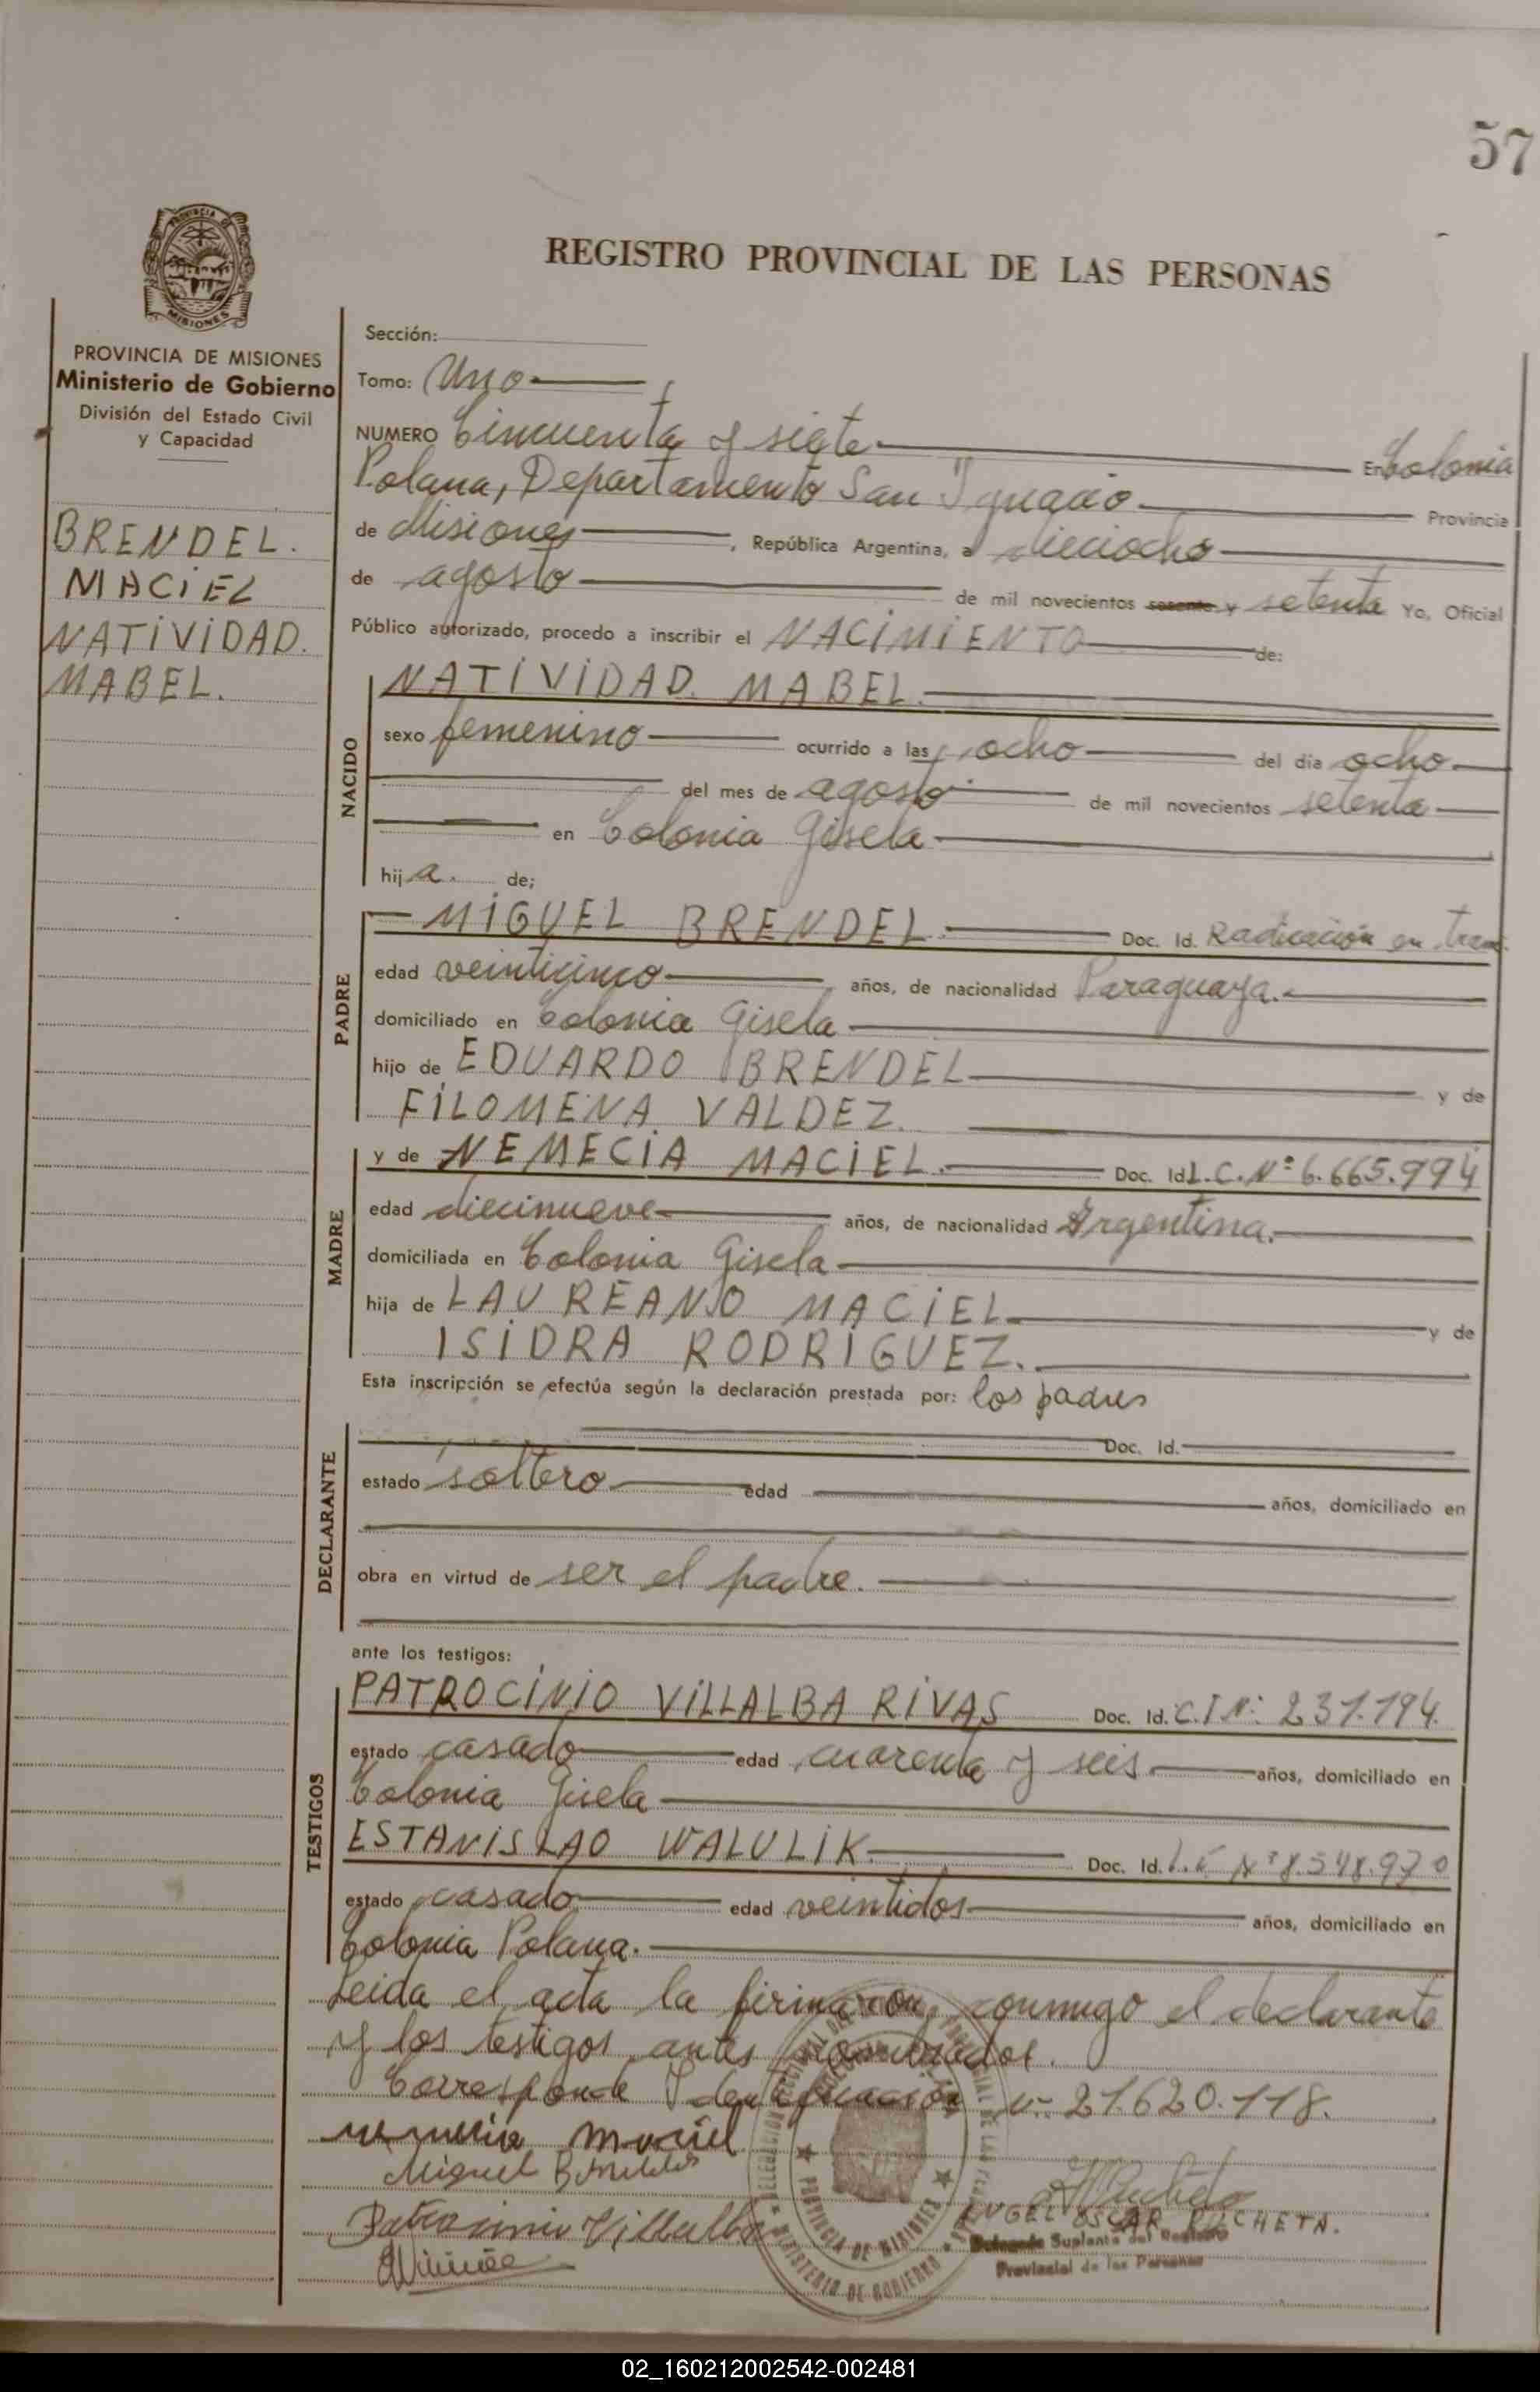 57
REGISTRO PROVINCIAL DE LAS PERSONAS
PROVINCIA DE MISIONES
Ministerio de Gobierno
División del Estado Civil
y Capacidad
BRENDEL.
MACIEL
NATIVIDAD.
MABEL.
Sección:
Tomo: Uno
NUMERO Cincuenta y siete En Colonia
Polana, Departamento San Ignacio Provincia
de Misiones, República Argentina, a dieciocho
de agosto de mil novecientos sesenta y setenta Yo, Oficial
Público autorizado, procedo a inscribir el NACIMIENTO de:
NACIDO
NATIVIDAD MABEL.
sexo femenino ocurrido a las ocho del día ocho
del mes de agosto de mil novecientos setenta
en Colonia Gisela
hija. de;
PADRE
MIGUEL BRENDEL. Doc. Id. Radicación en tram.
edad veinticinco años, de nacionalidad Paraguaya.
domiciliado en Colonia Gisela
hijo de EDUARDO BRENDEL y de
FILOMENA VALDEZ.
MADRE
y de NEMECIA MACIEL. Doc. Id L.C. Nº 6.665.994
edad diecinueve años, de nacionalidad Argentina.
domiciliada en Colonia Gisela
hija de LAUREANO MACIEL y de
ISIDRA RODRIGUEZ.
Esta inscripción se efectúa según la declaración prestada por: los padres
DECLARANTE
Doc. Id.
estado soltero edad años, domiciliado en
obra en virtud de ser el padre.
ante los testigos:
TESTIGOS
PATROCINIO VILLALBA RIVAS Doc. Id. C.I.N: 231.194.
estado casado edad cuarenta y seis años, domiciliado en
Colonia Gisela
ESTANISLAO WALULIK. Doc. Id. L.E Nº 8.548.970
estado casado edad veintidos años, domiciliado en
Colonia Polana.
Leida el acta la firmaron, conmigo el declarante
y los testigos antes nombrados.
Corresponde Identificación Nº 21.620.118.
nemecia maciel
Miguel Brendel
Patrocinio Villalba
ANGEL OSCAR PUCHETA.
Delegado Suplente del Registro
Provincial de las Personas
PROVINCIA DE MISIONES
MINISTERIO DE GOBIERNO
02_160212002542-002481